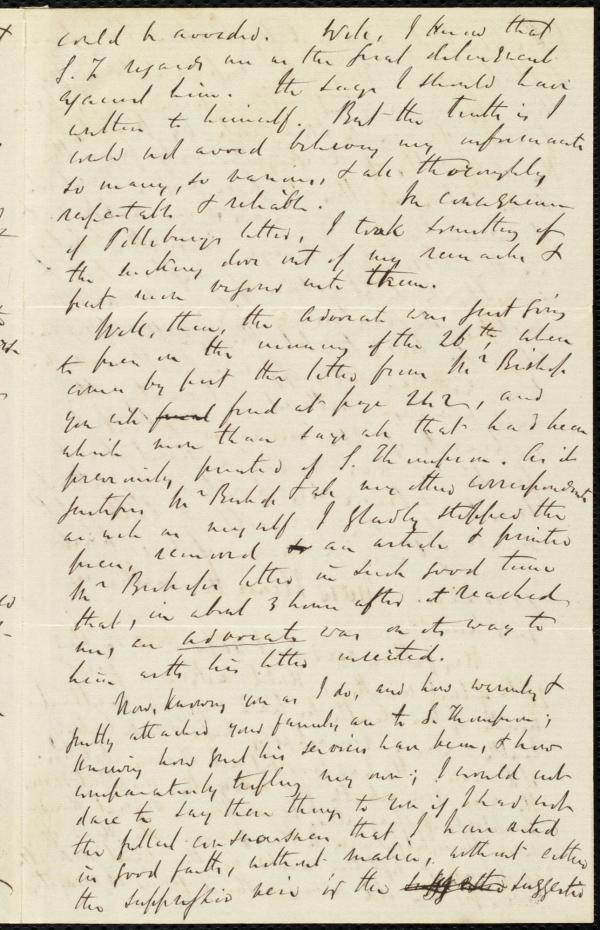 could be avoided. Well, I know that
G. T regards me as the great delinquent
against him. He says I should have
written to himself. But the truth is I
could not avoid believing my informants
so many, so various, & all thoroughly
respectable & reliable. In consequence
of Pillsbury's letter, I took something of
the sucking dove out of my remarks &
put more vigour into them.
Well, then, the Advocate was just going
to press on the morning of the 26th, when
comes by post the letter from Mr Bishop
you will find at page 242, and
which more than says all that had been
previously printed of G. Thompson. As it
justifies Mr Bishop & all my other correspondents
as well as myself I gladly stopped the
press, removed an article & printed
Mr Bishop's letter in such good time
that, in about 3 hours after it reached
me, an Advocate was on its way to
him with his letter inserted.
Now, knowing you as I do, and how warmly &
justly attached your family are to G. Thompson;
knowing how great his services have been, & how
comparatively trifling my own; I would not
dare to say these things to you if I had not
the fullest consciousness that I have acted
in good faith, without malice, without either
the suppressio veri or the suggestio